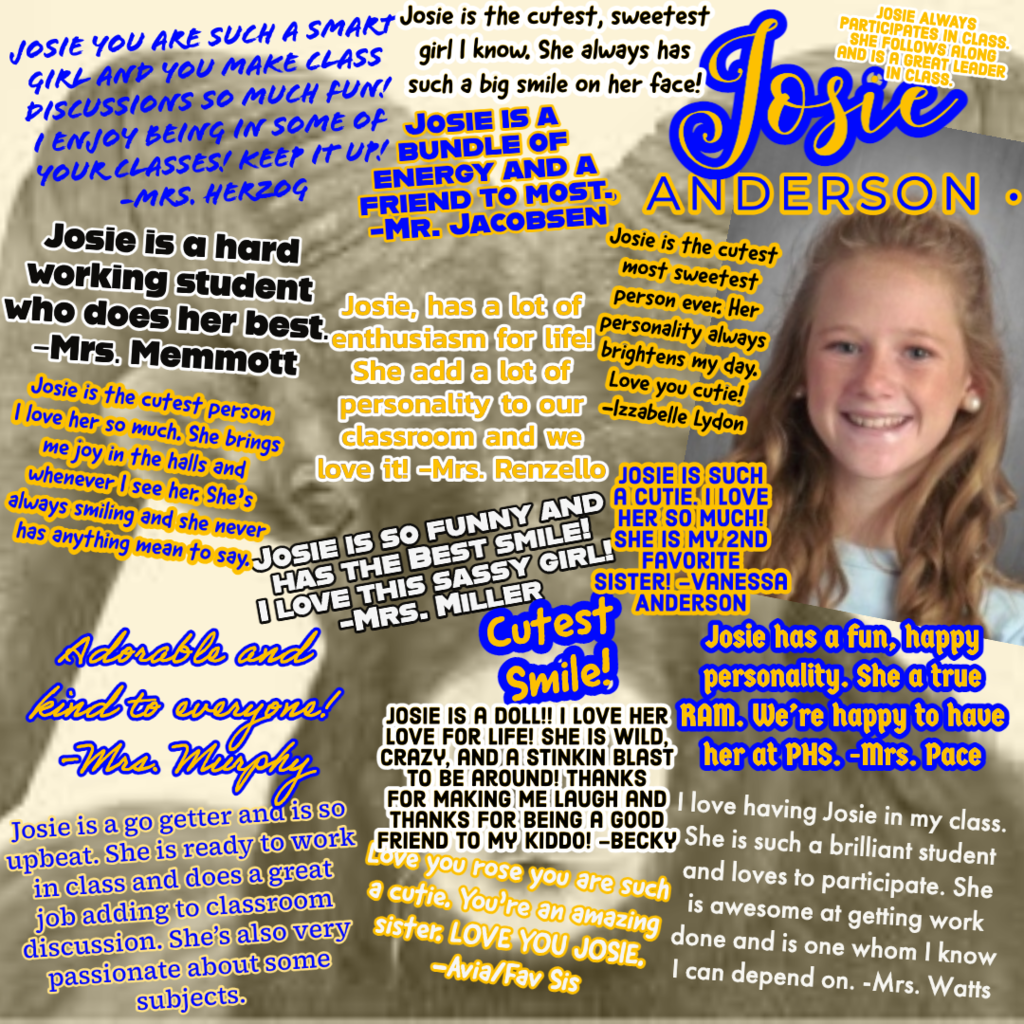 JOSIE YOU ARE SUCH A SMART
GIRL AND YOU MAKE CLASS
DISCUSSIONS SO MUCH FUN!
I ENJOY BEING IN SOME OF
YOUR CLASSES! KEEP IT UP!
-MRS. HERZOG
Josie is the cutest, sweetest
girl I know. She always has
such a big smile on her face!
Josie
ANDERSON •
JOSIE ALWAYS
PARTICIPATES IN CLASS.
SHE FOLLOWS ALONG
AND IS A GREAT LEADER
IN CLASS.
JOSIE IS A
BUNDLE OF
ENERGY AND A
FRIEND TO MOST.
-MR. JACOBSEN
Josie is a hard
working student
who does her best.
-Mrs. Memmott
Josie, has a lot of
enthusiasm for life!
She add a lot of
personality to our
classroom and we
love it! -Mrs. Renzello
Josie is the cutest
most sweetest
person ever. Her
personality always
brightens my day.
Love you cutie!
-Izzabelle Lydon
Josie is the cutest person
I love her so much. She brings
me joy in the halls and
whenever I see her. She's
always smiling and she never
has anything mean to say.
JOSIE IS SO FUNNY AND
HAS THE BEST SMILE!
I LOVE THIS SASSY GIRL!
-MRS. MILLER
JOSIE IS SUCH
A CUTIE. I LOVE
HER SO MUCH!
SHE IS MY 2ND
FAVORITE
SISTER! -VANESSA
ANDERSON
Cutest
Smile!
Adorable and
kind to everyone!
-Mrs. Murphy
JOSIE IS A DOLL!! I LOVE HER
LOVE FOR LIFE! SHE IS WILD,
CRAZY, AND A STINKIN BLAST
TO BE AROUND! THANKS
FOR MAKING ME LAUGH AND
THANKS FOR BEING A GOOD
FRIEND TO MY KIDDO! -BECKY
Josie has a fun, happy
personality. She a true
RAM. We're happy to have
her at PHS. -Mrs. Pace
Josie is a go getter and is so
upbeat. She is ready to work
in class and does a great
job adding to classroom
discussion. She's also very
passionate about some
subjects.
Love you rose you are such
a cutie. You're an amazing
sister. LOVE YOU JOSIE.
-Avia/Fav Sis
I love having Josie in my class.
She is such a brilliant student
and loves to participate. She
is awesome at getting work
done and is one whom I know
I can depend on. -Mrs. Watts